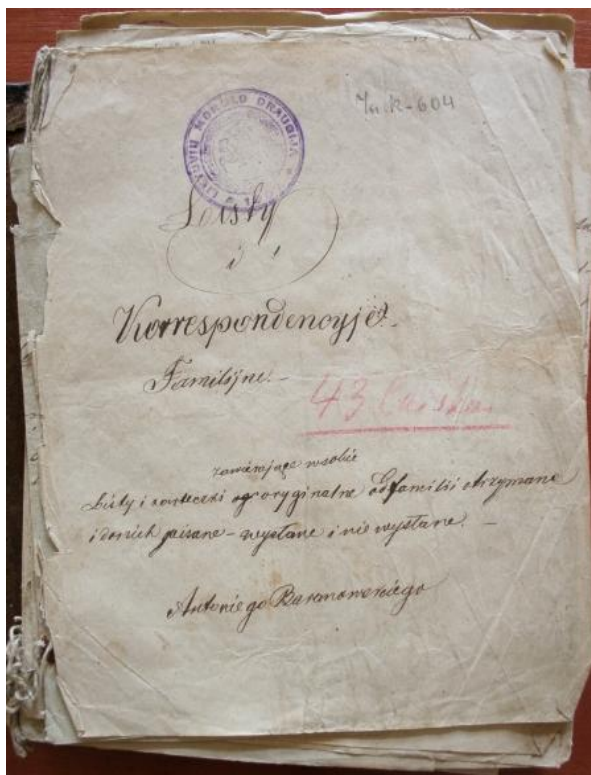 LIETUVIŲ MOKSLO DRAUGIJA
Listy
i
Korrespondencyje
Familijne.-
43
zawierające w sobie
Listy i karteczki oryginalne od familii otrzymane
i do nich pisane - wysłane i nie wysłane. -
Antoniego